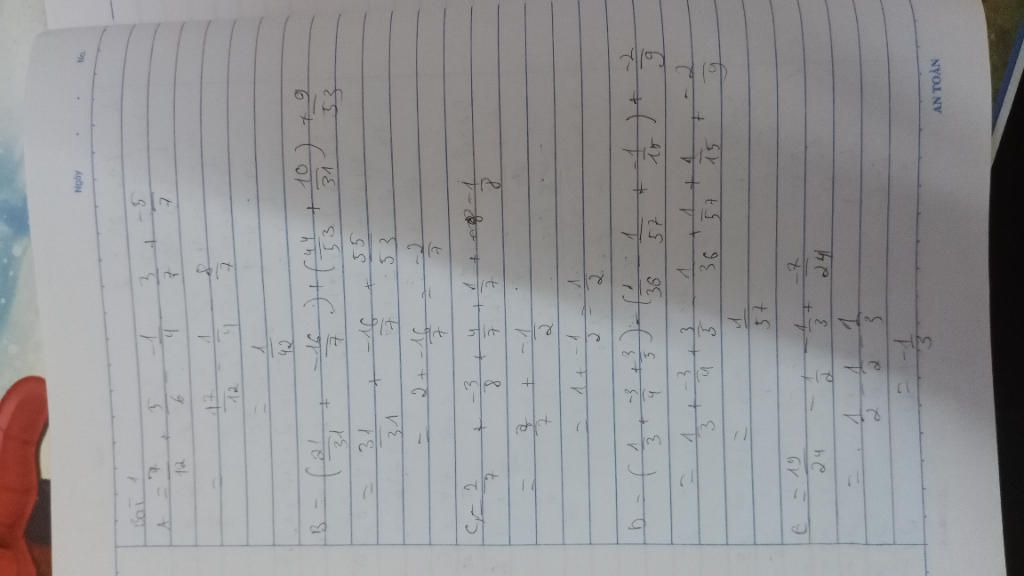 Ngày No.
Bài 1
A = 7/12 + 5/6 - 1/4 - 3/7 + -5/7
= 17/12 - 1/4 - 8/7
= 1/42
B = (21/31 + -16/7) + (44/53 + 10/31) + 9/53
= 31/31 + -16/7 + 55/53
= 2 + -16/7 = -2/7
C = 2/7 + -3/8 + 4/7 + 1/7 + -1/8
= 7/7 + -1/2
= 1 + -1/2 = 1/2
D = (1/3 + -3/4 + 3/5) - (1/36 - 1/57 + -1/15) + -2/9
= 1/3 + -3/4 + 3/5 - 1/36 + 1/57 + 1/15 + -2/9
= 1/57
E = 19/24 - 1/2 - 1/3 + -7/24
= 1/2 - 1/2 - 1/3
= -1/3
AN TOÀN